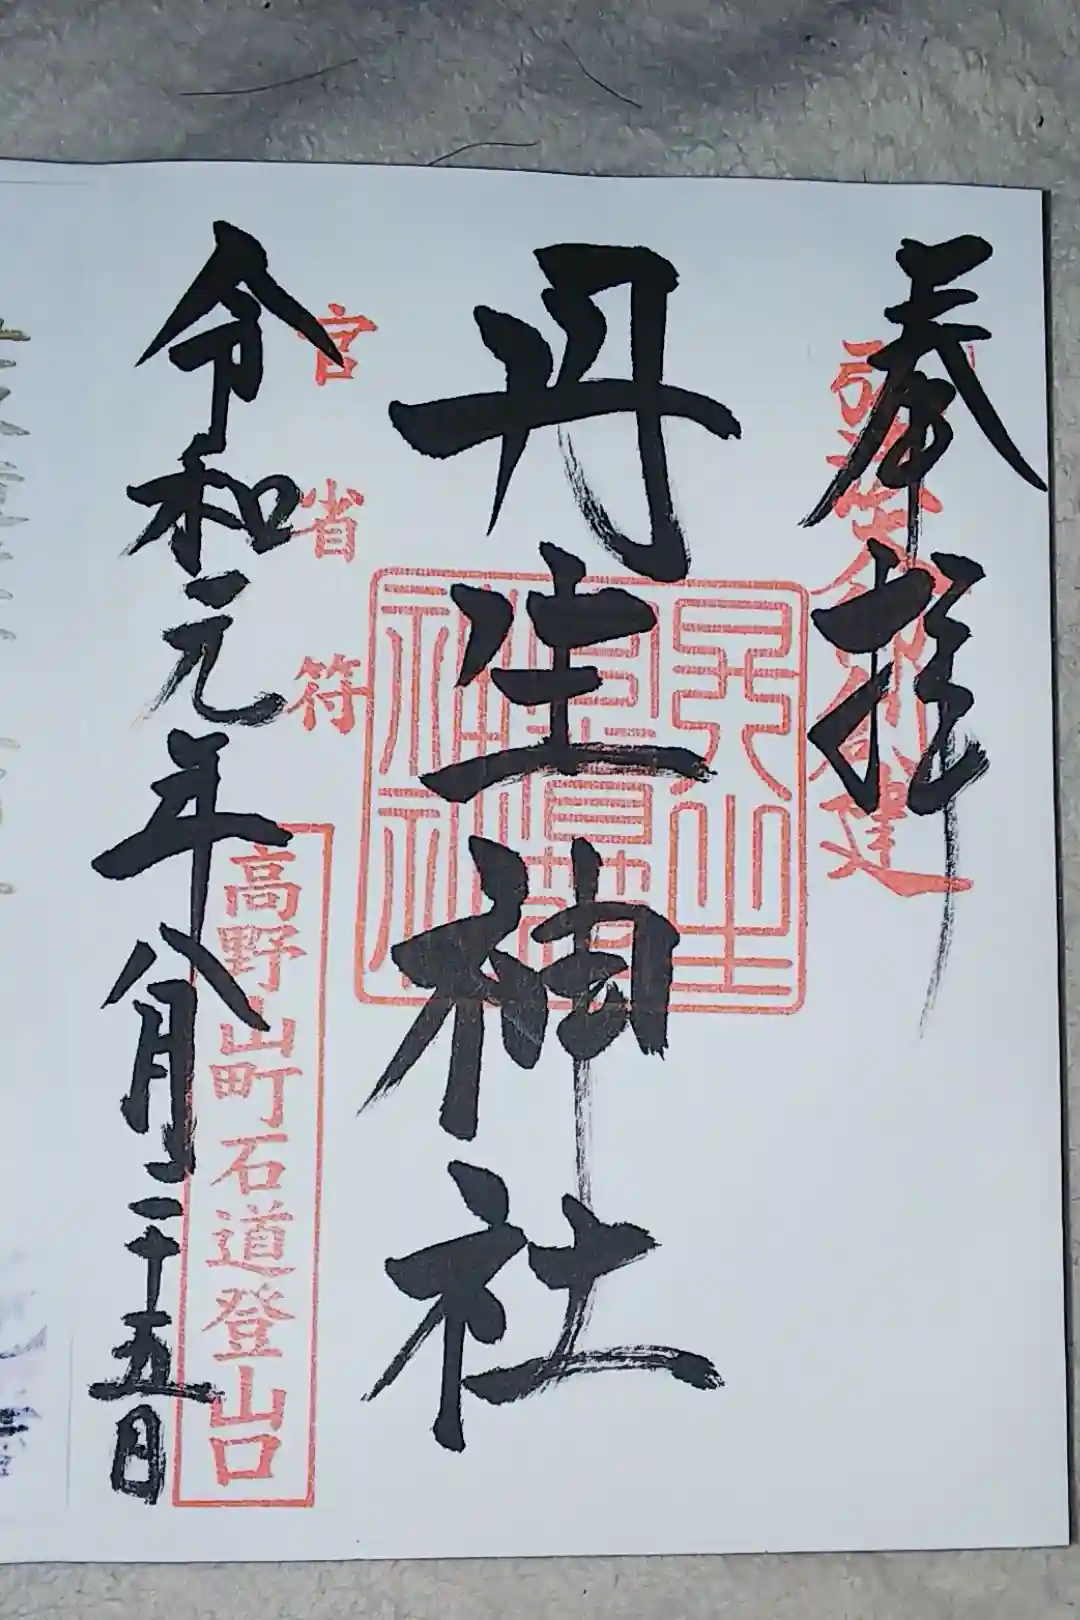 奉拝
丹生神社
官省符
令和元年八月二十五日
高野山町石道登山口